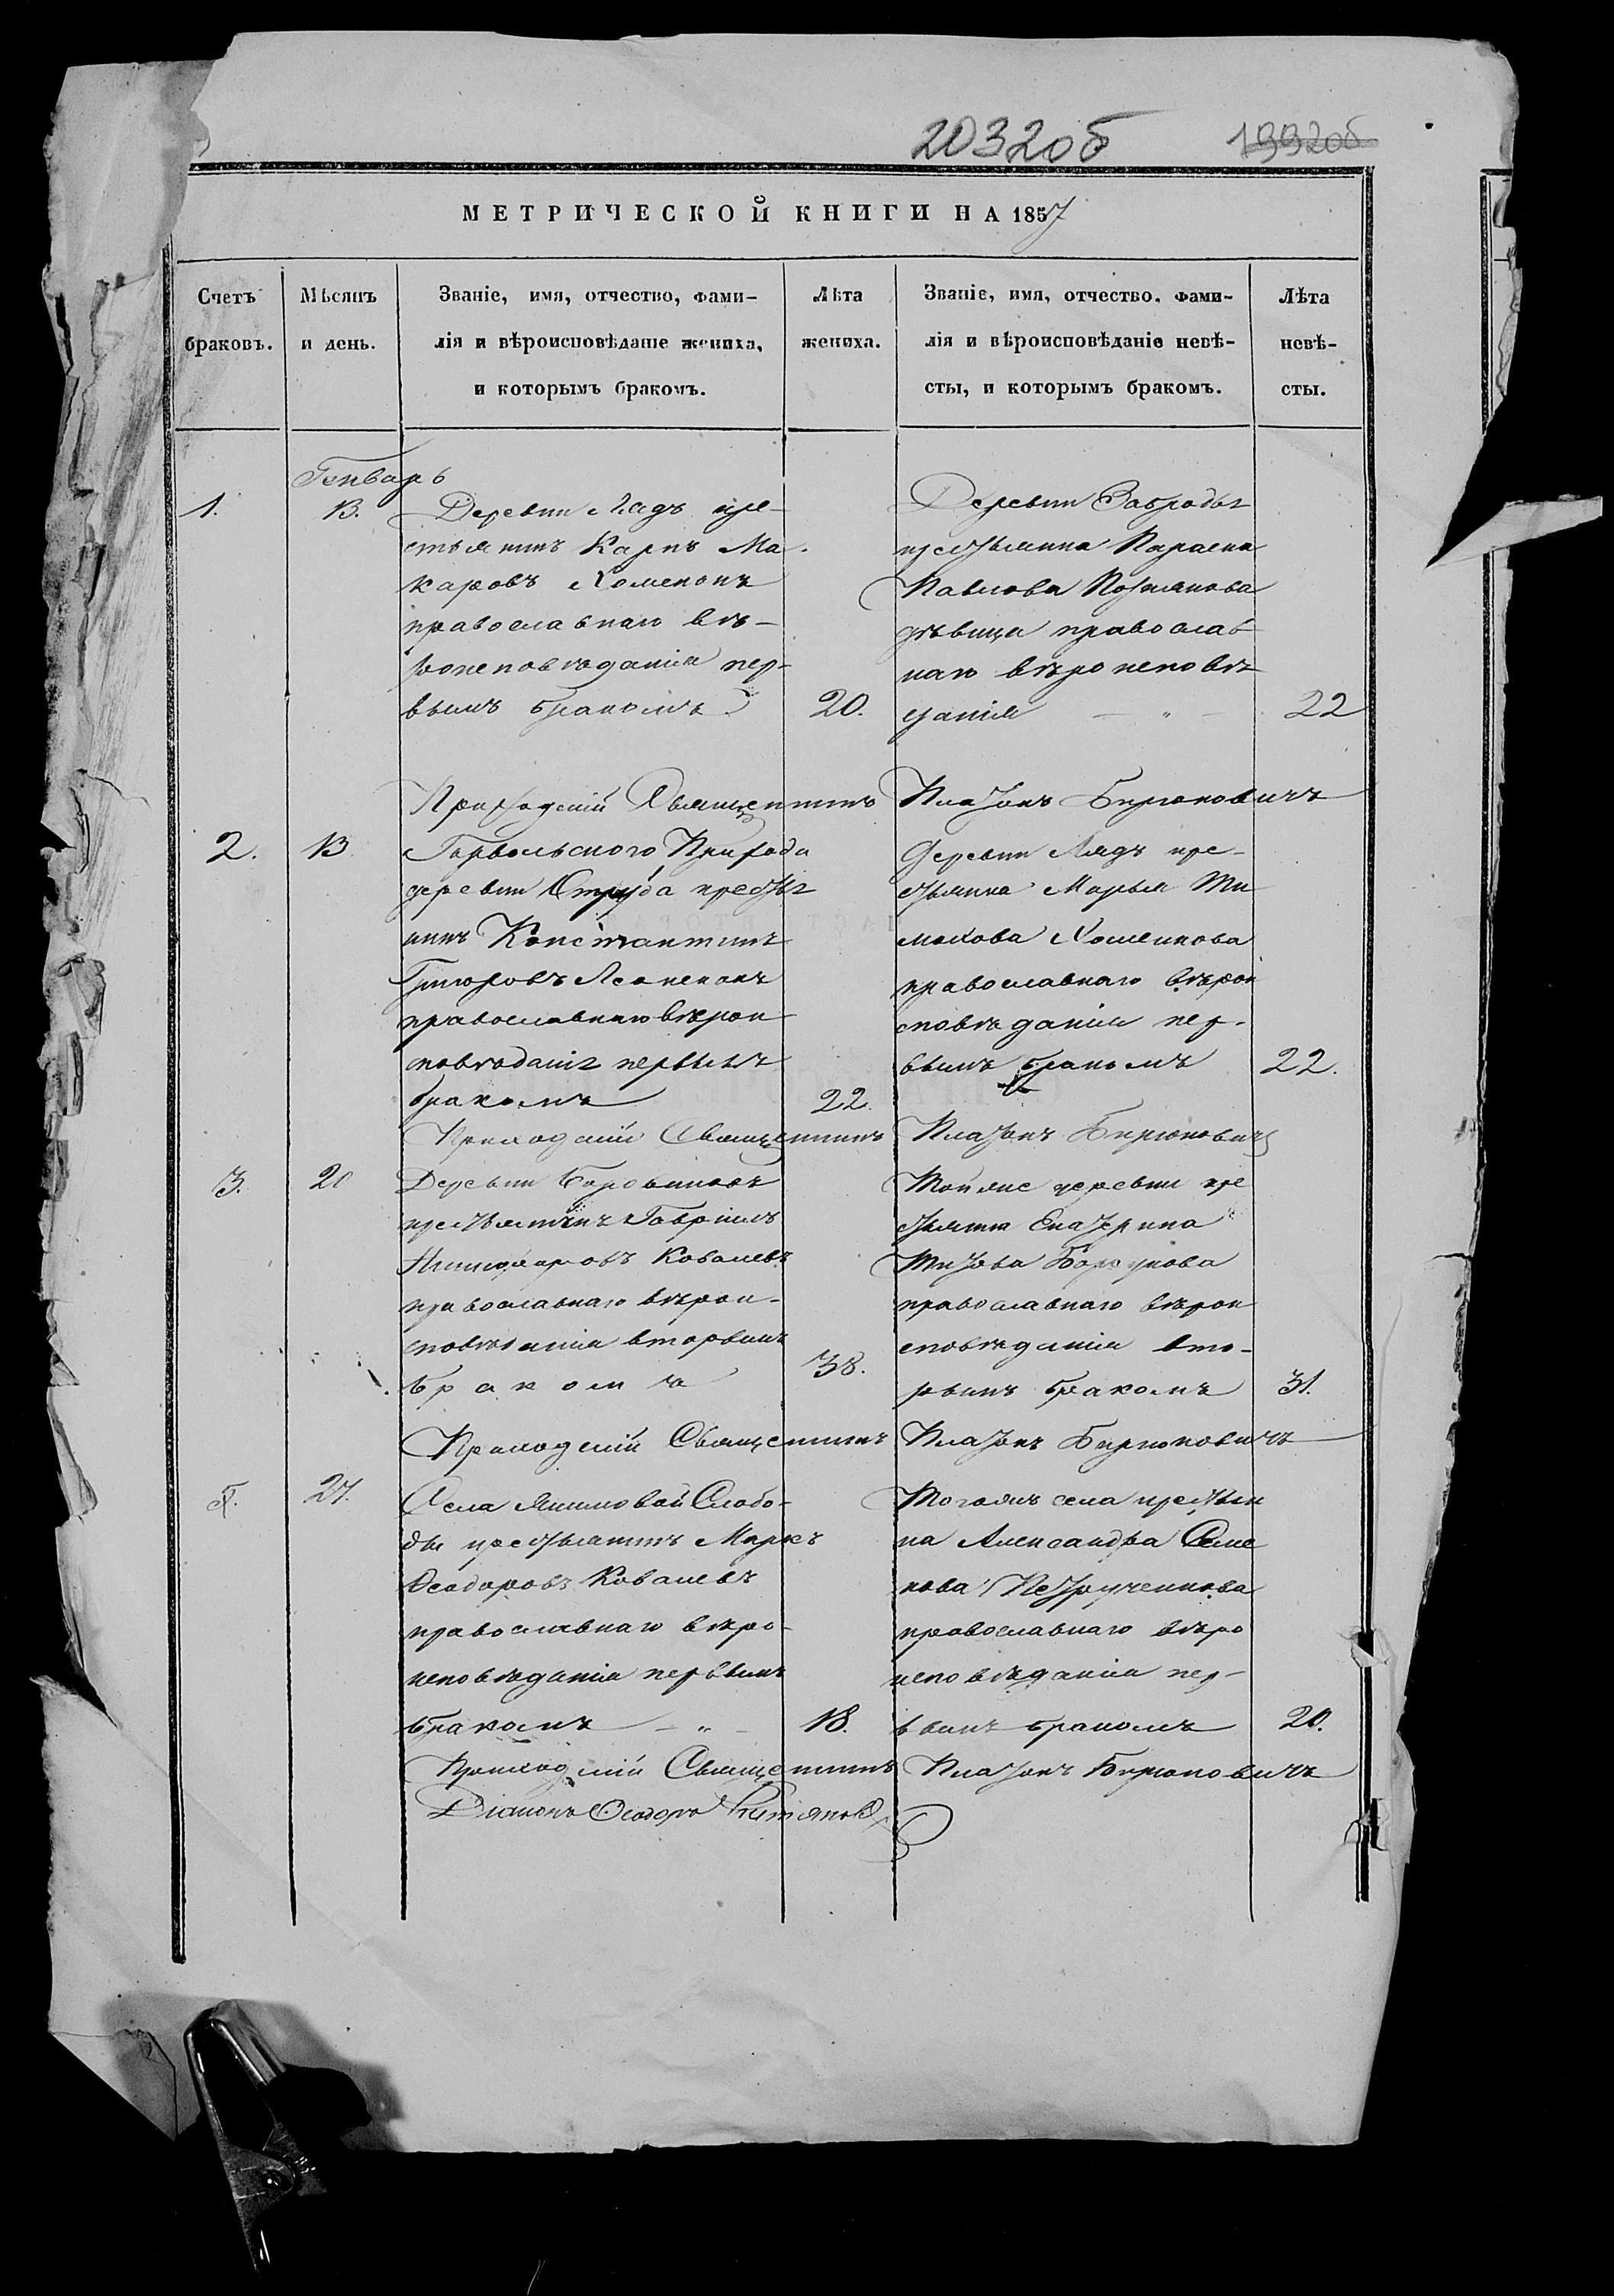 2032об 1992об
МЕТРИЧЕСКОЙ КНИГИ НА 1857
Счетъ браковъ.
Мѣсяцъ и день.
Званіе, имя, отчество, фами-
лія и вѣроисповѣданіе жениха,
и которымъ бракомъ.
Лѣта жениха.
Званіе, имя, отчество. фами-
лія и вѣроисповѣданіе невѣ-
сты, и которымъ бракомъ.
Лѣта невѣ-
сты.
Генварь
1. 13. Деревни Лядъ кре-
стьянинъ Карпъ Ма-
каровъ Хоменокъ
православнаго вѣ-
роисповѣданія пер-
вымъ бракомъ 20.
Деревни Заброды
крестьянка Параска
Павлова
дѣвица православ
наго вѣроисповѣ
данія — „ — 22
Приходскій Священникъ Платонъ Бирюковичъ
2. 13 Горвольского Прихода
деревни Струба кресть
нинъ Константинъ
Григоровъ
православнаго вѣрои
сповѣданія первымъ
бракомъ 22.
Деревни Лядъ кре-
стьянка Марья Ти
мохова Хоменкова
православнаго вѣрои
сповѣданія пер-
вымъ бракомъ 22.
Приходскій Священникъ Платонъ Бирюковичъ
3. 20 Деревни
крестьянинъ Гавріилъ
Никифоровъ Ковалевъ
православнаго вѣрои-
сповѣданія вторымъ
бракомъ 38.
Той же деревни кре
стьянка Екатерина
Титова
православнаго вѣрои
сповѣданія вто-
рымъ бракомъ 31.
Приходскій Священникъ Платонъ Бирюковичъ
4. 27. Села Якимовой Слобо-
ды крестьянинъ Марко
Ѳеодоровъ Ковалевъ
православнаго вѣро-
исповѣданія первымъ
бракомъ — „ — 18.
Тогожъ села крестьян
ка Александра Семе
нова Петрученкова
православнаго вѣро
исповѣданія пер-
вымъ бракомъ 20.
Приходскій Священникъ Платонъ Бирюковичъ
Діаконъ Ѳеодоръ